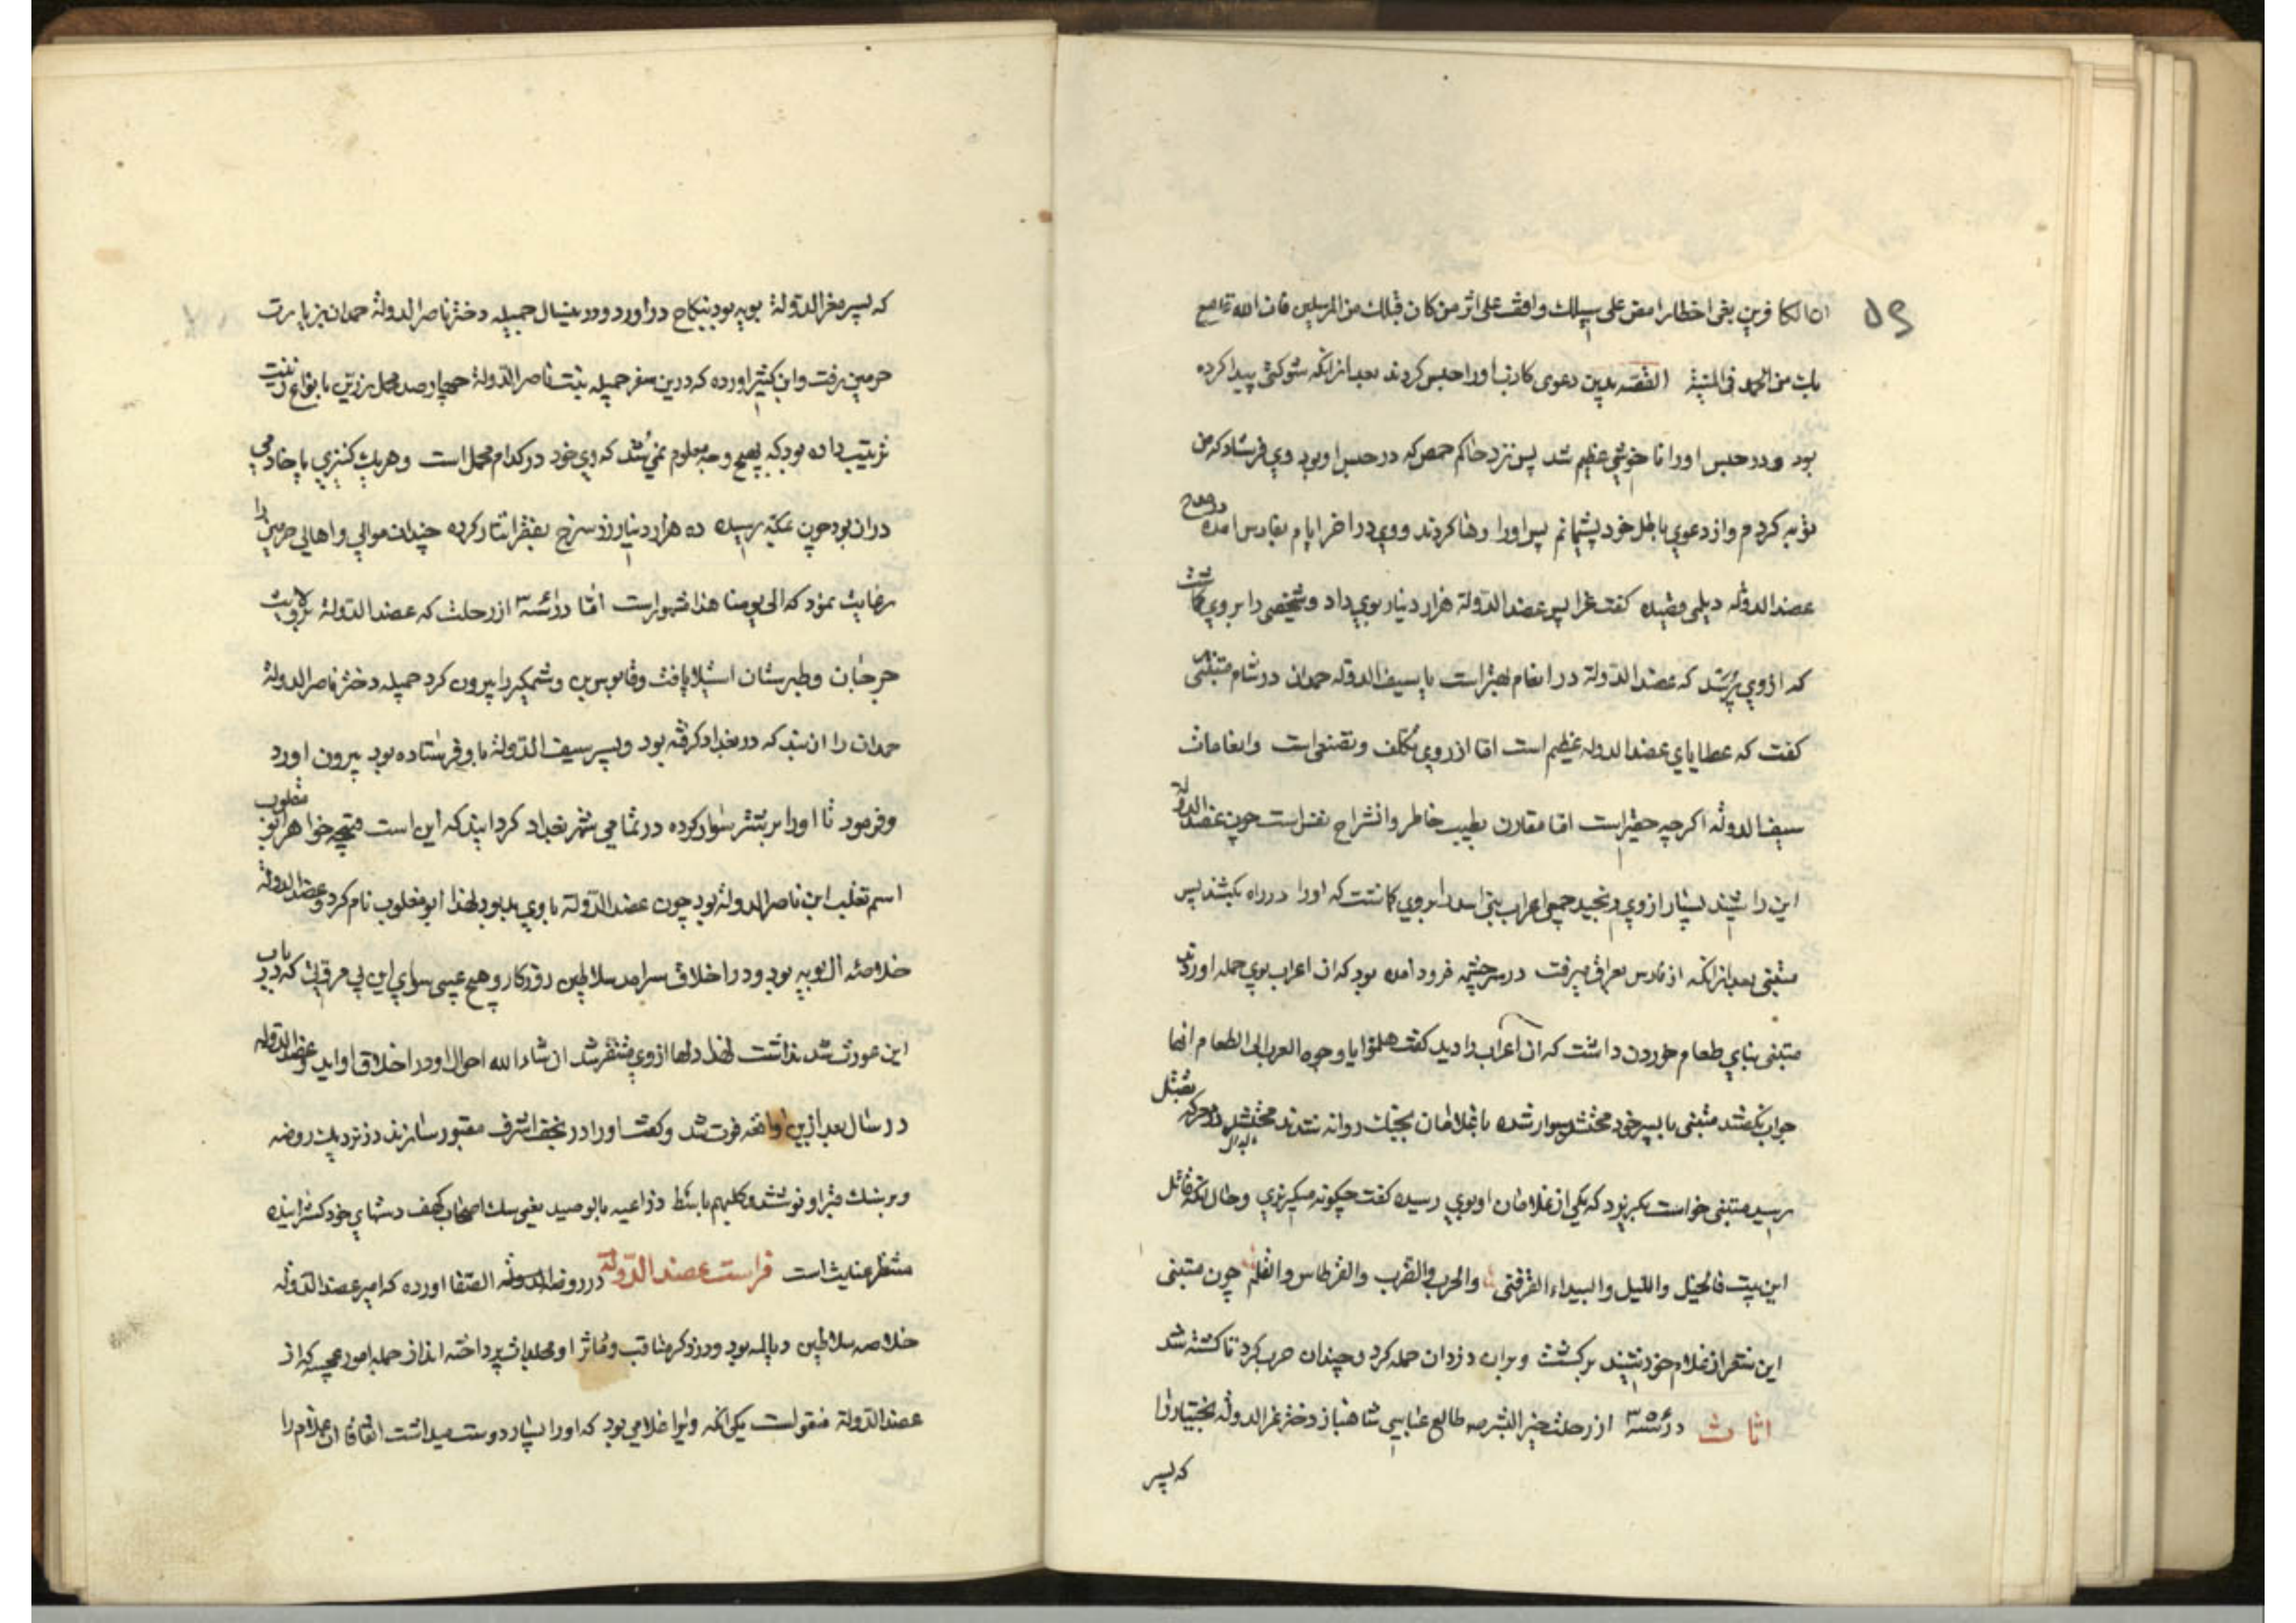 ان الکافرین بقی اخطارا مض علی سبیلك واقف علی اثر من کان قبلك من المرسلین فان الله قامع
بك من الحد فی القصه بدین دعوی کاذب اورا حبس کردند بعد ازانکه شوکتی پیدا کرده
بود ودر حبس اورا ناخوشی عظیم شد پس نزد حاکم حمص که در حبس او بود وی فرستاد که من
توبه کردم واز دعوی باطل خود پشیمانم پس اورا رها کردند ووی در اخر ایام بفارس امده
عضدالدوله دیلمی قصیده کفت غرا پس عضدالدولة هزار دینار بوی داد وشخصی را بر وی کماشت
که ازوی پرسد که عضدالدولة در انعام بهتر است یا سیف الدوله حمدان در شام متنبی
کفت که عطایای عضدالدوله عظیم است اما از روی تکلف وتصنع است وانعامات
سیف الدولة اکرچه حقیر است اما مقارن بطیب خاطر وانشراح نفس است چون عضدالدولة
این را شنید بسیار ازوی رنجید جمعی اعراب بنی اسد را بر وی کماشت که اورا در راه بکشند پس
متنبی بعد ازانکه از فارس بعراق میرفت در سرچشمه فرود امده بود که ان اعراب بوی حمله اوردند
متنبی بنای طعام خوردن داشت که ان اعراب را دید کفت هلموا یا وجوه العرب الی الطعام انها
جواب نکفتند متنبی با پسر خود محشد سوار شده با غلامان بجنك روانه شدند محشد در معرکه بقتل
رسید متنبی خواست بکریزد که یکی از غلامان او بوی رسیده کفت چکونه میکریزی وحال انکه قائل
این بیت فالخیل واللیل والبیداء تعرفنی والحرب والضرب والقرطاس والقلم چون متنبی
این شعر از غلام خود شنید برکشت وبران دزدان حمله کرد وچندان حرب کرد تا کشته شد
اناث در سنه از رحلت خیر البشر صه طایع عباسی شاهناز دختر عزالدولة بختیار را
که پسر
که پسر معزالدولة بویه بود بنکاح دراورد ودر ینسال جمیله دختر ناصر الدولة حمدان نیز بزیارت
حرمین رفت وابن کثیر اورده که درین سفر جمیله بنت ناصر الدولة چهارصد محمل زرین بانواع زینت
ترتیب داده بود که بهیچ وجه معلوم نمی شد که وی خود در کدام محمل است وهر یك کنیزی با خادمی
دران بود چون بمکه رسیده ده هزار دینار زر سرخ بفقرا نثار کرده چندان موالی واهالی حرمین را
رعایت نمود که الی یومنا هذا مشهور است اما در سنه از رحلت که عضدالدولة بر ولایت
جرجان وطبرستان استیلا یافت وقابوس بن وشمکیر را بیرون کرد جمیله دختر ناصر الدولة
حمدان را از بند که در بغداد کرفته بود وپسر سیف الدولة باو فرستاده بود بیرون اورد
وفرمود تا اورا بر شتر سوار کرده در تمامی شهر بغداد کردانیدند که این است قبحه خواهر ابو مغلوب
اسم تغلب ابن ناصر الدولة بود چون عضدالدولة با وی بد بود لهذا ابو مغلوب نام کرد وعضدالدولة
خلاصه ال بویه بود ودر اخلاق سرامد سلاطین روزکار وهیچ عیبی سوای این بی مروتی که در باب
این عورت شد نداشت لهذا دلها ازوی متنفر شد ان شاء الله احوال او در اخلاق او اید وعضدالدوله
در سال بعد ازین واقعه فوت شد وکفت اورا در نجف اشرف مقبور سازند در نزدیك روضه
وبر سنك قبر او نوشتند وکلبهم باسط ذراعیه بالوصید یعنی سك اصحاب کهف دستهای خود کسترانیده
منتظر عنایت است فراست عضدالدولة در روضة الصفا اورده که امیر عضدالدولة
خلاصه سلاطین دیالمه بود ودر ذکر مناقب وماثر او مجلدات پرداخته اند از جمله امور عجیبه که از
عضدالدولة منقول است یکی انکه ویرا غلامی بود که اورا بسیار دوست میداشت اتفاقا ان غلام را